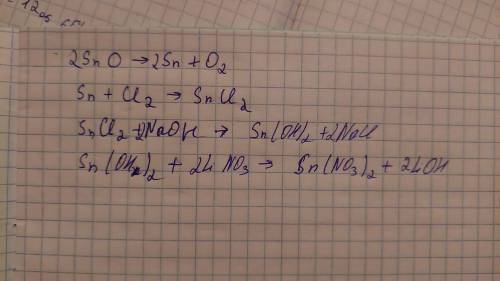 2SnO → 2Sn + O₂
Sn + Cl₂ → SnCl₂
SnCl₂ + 2NaOH → Sn(OH)₂ + 2NaCl
Sn(OH)₂ + 2HNO₃ → Sn(NO₃)₂ + 2HOH